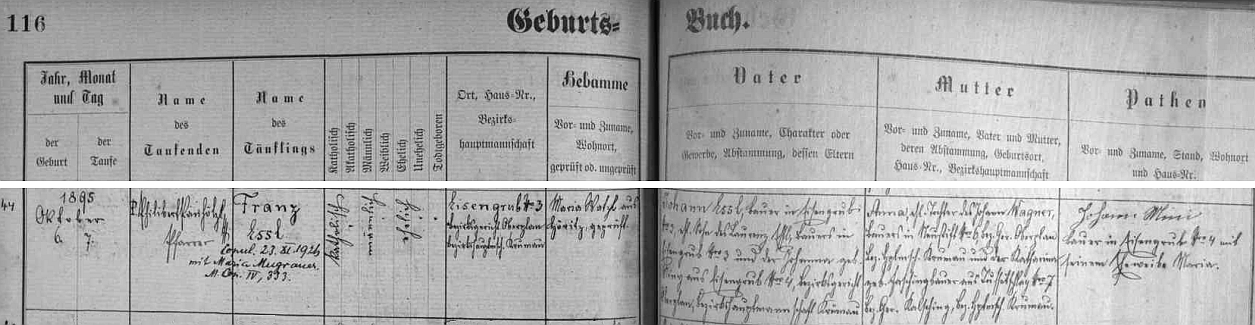 116
Geburts=
Buch.
Jahr, Monat
und Tag
der
Geburt
der
Taufe
Name
des
Taufenden
Name
des
Täuflings
Katholisch
Akatholisch
Männlich
Weiblich
Ehelich
Unehelich
Todtgeboren
Ort, Haus-Nr.,
Bezirks-
hauptmannschaft
Hebamme
Vor- und Zuname,
Wohnort,
geprüft od. ungeprüft
Vater
Vor- und Zuname, Charakter oder
Gewerbe, Abstammung, dessen Eltern
Mutter
Vor- und Zuname, Vater und Mutter,
deren Abstammung, Geburtsort,
Haus-Nr., Bezirkshauptmannschaft
Pathen
Vor- und Zuname, Stand, Wohnort
und Haus-Nr.
44
1895
Oktober
6. 7.
Pfarrer
Franz
Essl
Copul. 23.XI.1926
mit Maria Mugrauer
IV, 333.
Eisengrub No 3
Bezirksgericht Oberplan
Maria
geprüft
Johann Essl, Bauer in Eisengrub
No 3, Sohn des
Bauers in
Eisengrub No 3 und der Johanna geb.
aus Eisengrub No 4, Bezirksgericht
Oberplan, Bezirkshauptmannschaft Krumau
Anna, Tochter des Johann Wagner,
Bauers in Neustift No 6 bez. Ger. Oberplan
Krumau und der Katharina
bez. Ger. Kalsching, Krumau.
Johann
Bauer in Eisengrub No 4 mit
seinem Eheweibe Maria.